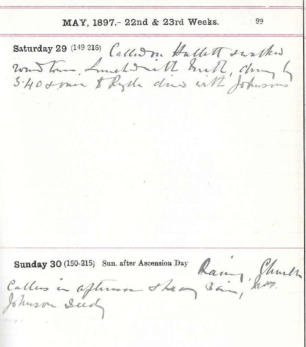 MAY, 1897.- 22nd & 23rd Weeks. 99
Saturday 29 (149-216) Called on Hallett & walked
round town. Lunched with Smith, 
5.40 & to Ryde dined with Johnsons
Sunday 30 (150-215) Sun. after Ascension Day Rainy, Church
Callers in afternoon & heavy rain, Mrs.
Johnson seedy